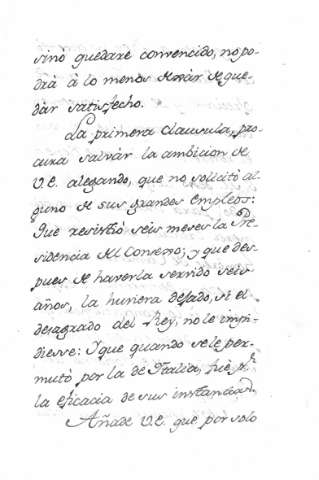 sinó quedare convencido, no po-
drá à lo menos dexár de que-
dàr satisfecho.
La primera clausula, pro-
cura salvàr la ambicion de
V.E. alegando, que no solicitó al-
guno de sus grandes Empleos:
Que resistió seis meses la Pre-
sidencia del Consejo; y que des-
pues de haverla servido seis
años, la huviera dejado, si el
desagrado del Rey, no le impi-
diesse: Y que quando se le per-
mutó por la de Italia, fuè pr.
la eficacia de sus instancias.
Añade V.E. que por solo